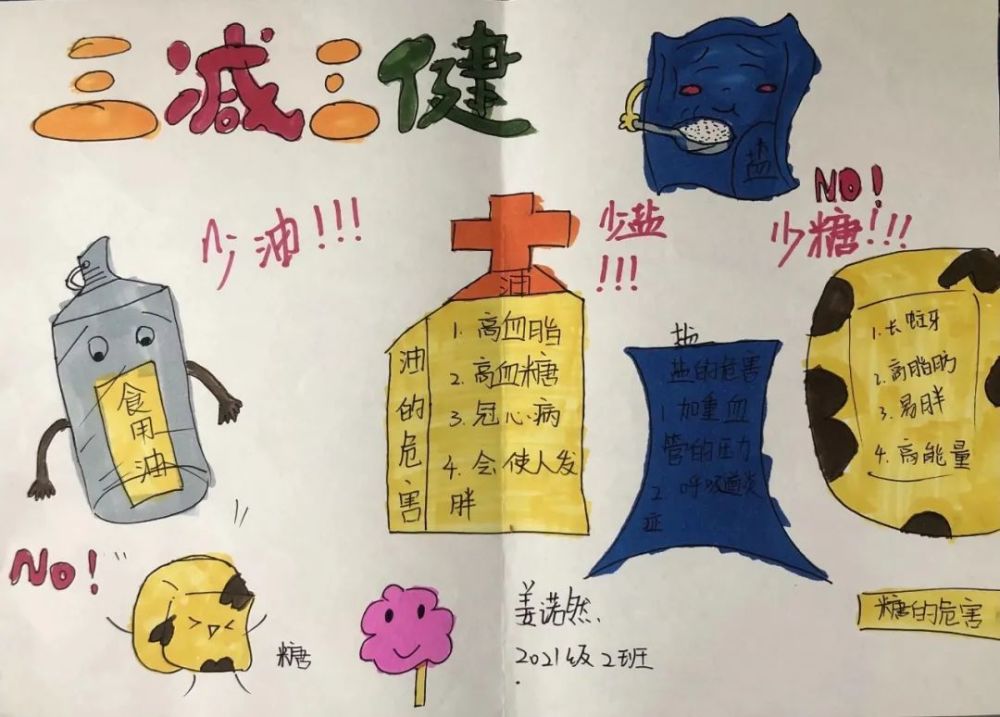 三减三健
盐
NO!
少油!!!
少盐
!!!
少糖!!!
食用油
油
油的危害
1. 高血脂
2. 高血糖
3. 冠心病
4. 会使人发
胖
盐
盐的危害
1 加重血
管的压力
2 呼吸道炎
症
1. 长蛀牙
2. 高脂肪
3. 易胖
4. 高能量
糖的危害
No!
糖
姜诺然.
2021级2班